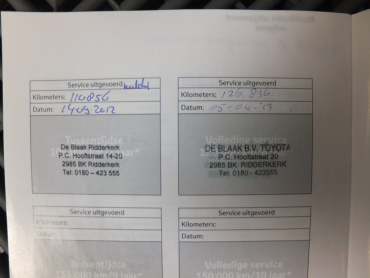 Service uitgevoerd
Kilometers: 110856
Datum: 14 05 2012
Tussentijdse
De Blaak Ridderkerk
P.C. Hooftstraat 14-20
2985 BK Ridderkerk
Tel. 0180 – 423 555
Service uitgevoerd
Kilometers: 126.836.
Datum: 05-04-'13
Volledige service
DE BLAAK B.V. TOYOTA
P.C. Hooftstraat 20
2985 BK RIDDERKERK
Tel. 0180 - 423555
Service uitgevoerd
Kilometers:
Datum:
Tussentijdse
135.000 km/9 jaar*
Service uitgevoerd
Kilometers:
Datum:
Volledige service
150.000 km/10 jaar*